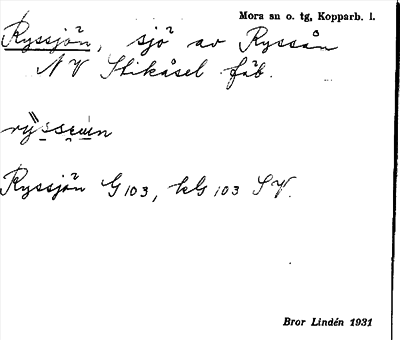 Mora sn o. tg, Kopparb. l.
Ryssjön, sjö av Ryssån
NV Stikåsel fäb.
Ryssjön G 103, kls 103 SV.
Bror Lindén 1931